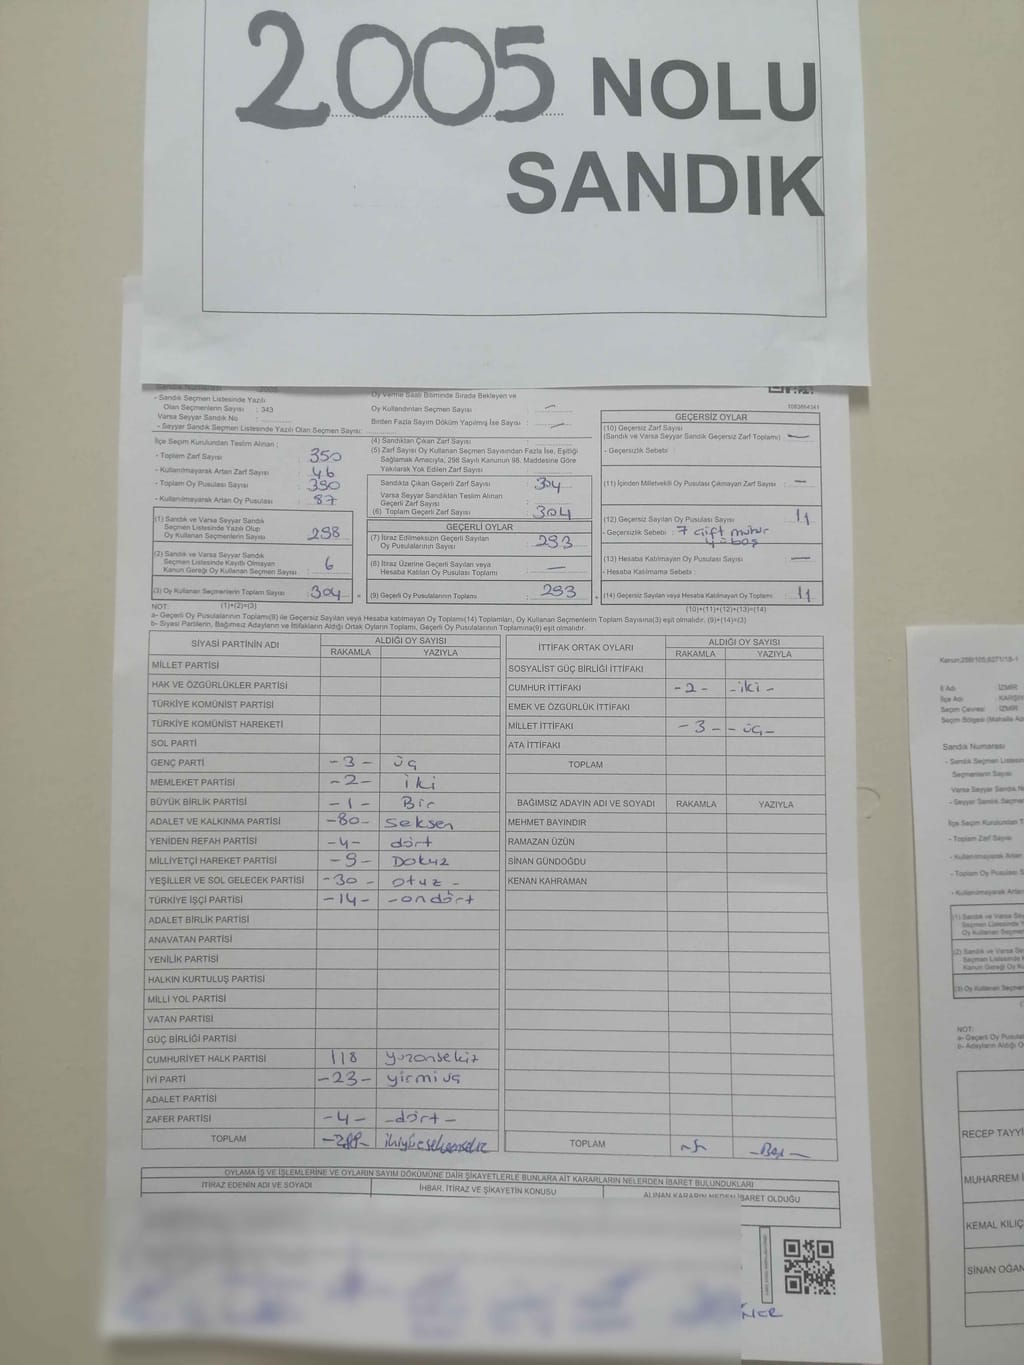 2005 NOLU
SANDIK
Sandık Numarası : 2005
- Sandık Seçmen Listesinde Yazılı
Olan Seçmenlerin Sayısı : 343
Varsa Seyyar Sandık No
- Seyyar Sandık Seçmen Listesinde Yazılı Olan Seçmen Sayısı:
İlçe Seçim Kurulundan Teslim Alınan :
- Toplam Zarf Sayısı : 350
- Kullanılmayarak Artan Zarf Sayısı : 46
- Toplam Oy Pusulası Sayısı : 390
- Kullanılmayarak Artan Oy Pusulası : 87
(1) Sandık ve Varsa Seyyar Sandık
Seçmen Listesinde Yazılı Olup
Oy Kullanan Seçmenlerin Sayısı : 298
(2) Sandık ve Varsa Seyyar Sandık
Seçmen Listesinde Kayıtlı Olmayan
Kanun Gereği Oy Kullanan Seçmen Sayısı : 6
(3) Oy Kullanan Seçmenlerin Toplam Sayısı : 304
(1)+(2)=(3)
Oy Verme Saati Bitiminde Sırada Bekleyen ve
Oy Kullandırılan Seçmen Sayısı : —
Birden Fazla Sayım Döküm Yapılmış İse Sayısı : —
(4) Sandıktan Çıkan Zarf Sayısı :
(5) Zarf Sayısı Oy Kullanan Seçmen Sayısından Fazla İse, Eşitliği
Sağlamak Amacıyla; 298 Sayılı Kanunun 98. Maddesine Göre
Yakılarak Yok Edilen Zarf Sayısı :
Sandıkta Çıkan Geçerli Zarf Sayısı : 304
Varsa Seyyar Sandıktan Teslim Alınan
Geçerli Zarf Sayısı :
(6) Toplam Geçerli Zarf Sayısı : 304
GEÇERLİ OYLAR
(7) İtiraz Edilmeksizin Geçerli Sayılan
Oy Pusulalarının Sayısı : 293
(8) İtiraz Üzerine Geçerli Sayılan veya
Hesaba Katılan Oy Pusulası Toplamı : —
(9) Geçerli Oy Pusulalarının Toplamı : 293
1083864341
GEÇERSİZ OYLAR
(10) Geçersiz Zarf Sayısı
(Sandık ve Varsa Seyyar Sandık Geçersiz Zarf Toplamı) : —
- Geçersizlik Sebebi :
(11) İçinden Milletvekili Oy Pusulası Çıkmayan Zarf Sayısı : —
(12) Geçersiz Sayılan Oy Pusulası Sayısı : 11
- Geçersizlik Sebebi : 7 Çift mühür
4 = boş
(13) Hesaba Katılmayan Oy Pusulası Sayısı : —
- Hesaba Katılmama Sebebi :
(14) Geçersiz Sayılan veya Hesaba Katılmayan Oy Toplamı : 11
(10)+(11)+(12)+(13)=(14)
NOT:
a- Geçerli Oy Pusulalarının Toplamı(9) ile Geçersiz Sayılan veya Hesaba katılmayan Oy Toplamı(14) Toplamları, Oy Kullanan Seçmenlerin Toplam Sayısına(3) eşit olmalıdır. (9)+(14)=(3)
b- Siyasi Partilerin, Bağımsız Adayların ve İttifakların Aldığı Ortak Oyların Toplamı, Geçerli Oy Pusulalarının Toplamına(9) eşit olmalıdır.
SİYASİ PARTİNİN ADI ALDIĞI OY SAYISI
RAKAMLA YAZIYLA
MİLLET PARTİSİ
HAK VE ÖZGÜRLÜKLER PARTİSİ
TÜRKİYE KOMÜNİST PARTİSİ
TÜRKİYE KOMÜNİST HAREKETİ
SOL PARTİ
GENÇ PARTİ -3- üç
MEMLEKET PARTİSİ -2- iki
BÜYÜK BİRLİK PARTİSİ -1- Bir
ADALET VE KALKINMA PARTİSİ -80- Seksen
YENİDEN REFAH PARTİSİ -4- dört
MİLLİYETÇİ HAREKET PARTİSİ -9- Dokuz
YEŞİLLER VE SOL GELECEK PARTİSİ -30- otuz-
TÜRKİYE İŞÇİ PARTİSİ -14- -ondört
ADALET BİRLİK PARTİSİ
ANAVATAN PARTİSİ
YENİLİK PARTİSİ
HALKIN KURTULUŞ PARTİSİ
MİLLİ YOL PARTİSİ
VATAN PARTİSİ
GÜÇ BİRLİĞİ PARTİSİ
CUMHURİYET HALK PARTİSİ 118 yüzonsekiz
İYİ PARTİ -23- yirmi üç
ADALET PARTİSİ
ZAFER PARTİSİ -4- -dört-
TOPLAM -288- ikiyüzseksensekiz
İTTİFAK ORTAK OYLARI ALDIĞI OY SAYISI
RAKAMLA YAZIYLA
SOSYALİST GÜÇ BİRLİĞİ İTTİFAKI
CUMHUR İTTİFAKI -2- -iki-
EMEK VE ÖZGÜRLÜK İTTİFAKI
MİLLET İTTİFAKI -3- -üç-
ATA İTTİFAKI
TOPLAM
BAĞIMSIZ ADAYIN ADI VE SOYADI RAKAMLA YAZIYLA
MEHMET BAYINDIR
RAMAZAN ÜZÜN
SİNAN GÜNDOĞDU
KENAN KAHRAMAN
TOPLAM -5- -Beş-
OYLAMA İŞ VE İŞLEMLERİNE VE OYLARIN SAYIM DÖKÜMÜNE DAİR ŞİKAYETLERLE BUNLARA AİT KARARLARIN NELERDEN İBARET BULUNDUKLARI
İTİRAZ EDENİN ADI VE SOYADI İHBAR, İTİRAZ VE ŞİKAYETİN KONUSU ALINAN KARARIN NEDEN İBARET OLDUĞU
İl Adı : İZMİR
İlçe Adı
Seçim Çevresi : İZMİR
Sandık Numarası
RECEP TAYYİ
MUHARREM İ
KEMAL KILIÇ
SİNAN OĞAN